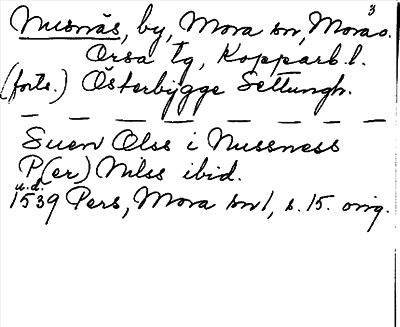 3
Nusnäs, by, Mora sn, Mora o.
Orsa tg, Kopparb. l.
(forts.) Österbygge Settungh.
Suen Olss i Nussness
P(er) Nilss ibid.
u.d.
1539 Pers, Mora sn 1, s. 15. orig.